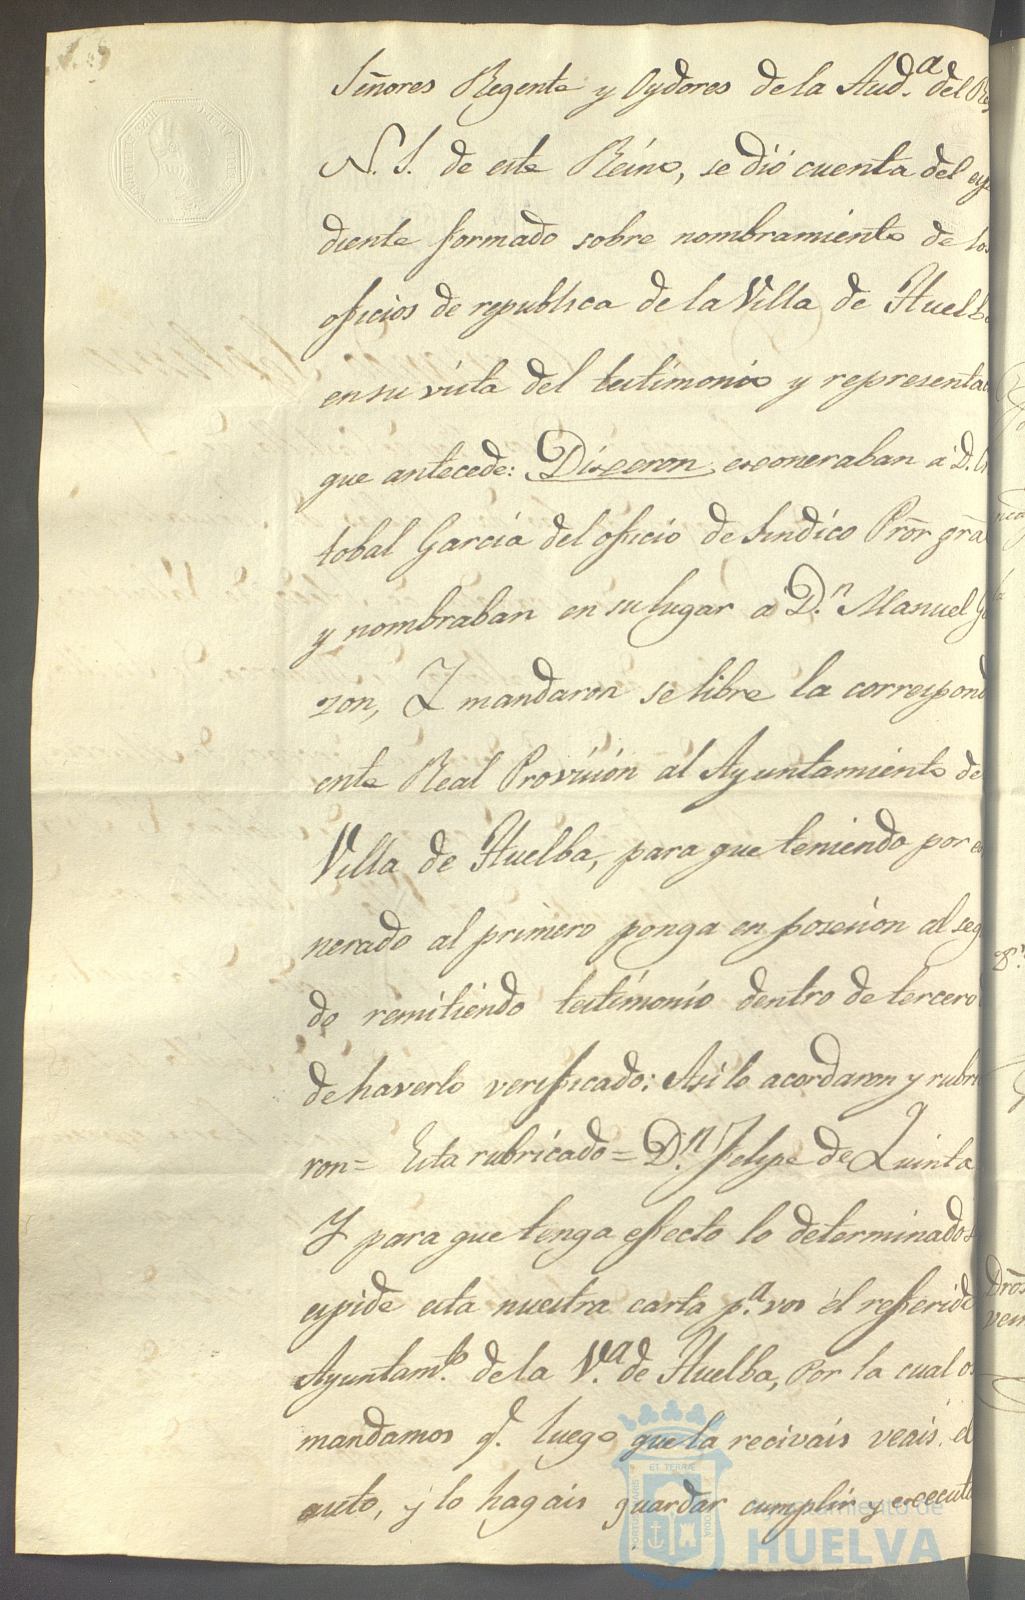 Señores Regente y Oydores de la Aud.ª del Rey
N. S. de este Reino, se dió cuenta del espe
diente formado sobre nombramiento de los
oficios de republica de la Villa de Huelba
en su vista del testimonio y representa
que antecede: Dixeron exoneraban á D.
tobal García del oficio de Sindico Prōr grā
y nombraban en su lugar a D.n Manuel
zon, Y mandaron se libre la correspond
ente Real Provision al Ayuntamiento de
Villa de Huelba, para que teniendo por
nerado al primero ponga en posesion al seg
do remitiendo testimonio dentro de tercero
de haverlo verificado: Asi lo acordaron y rubri
ron = Esta rubricado = D.n Felipe de Quinta
Y para que tenga efecto lo determinado
espide esta nuestra carta p.ª vos él referido
Ayuntam.to de la V.ª de Huelba, Por la cual os
mandamos q.e luego que la recivais veais el
auto, y lo hagais guardar cumplir y executa
Ayuntamiento de
HUELVA
ET TERRÆ